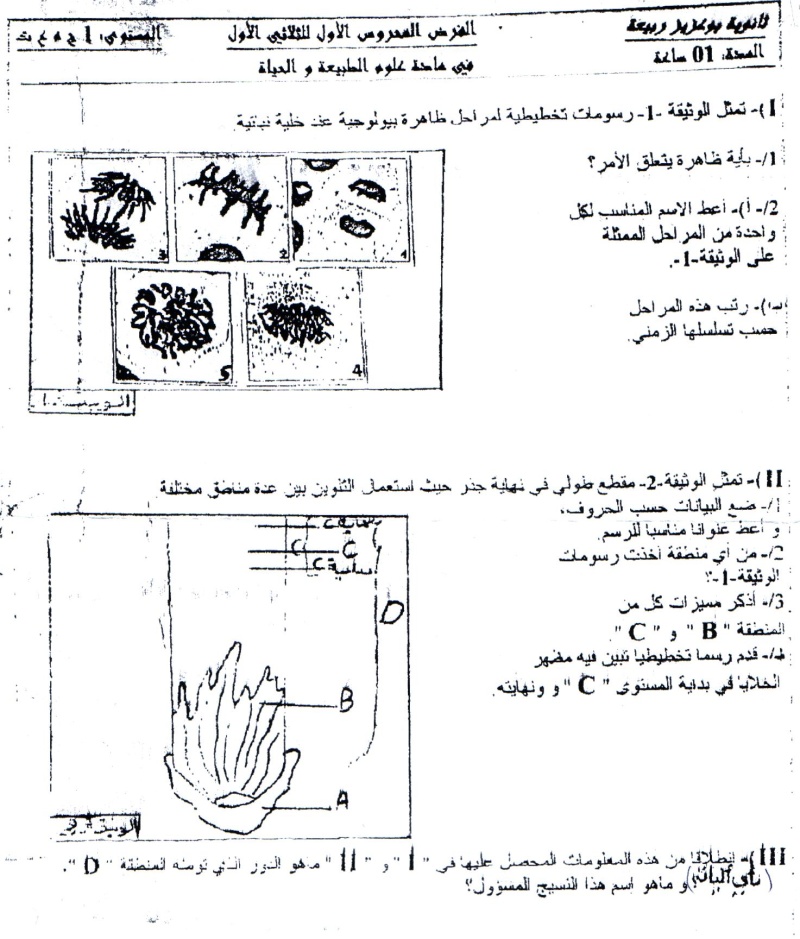 ثانوية بوعزيز ربيعة
الفرض المحروس الأول للثلاثي الأول
المستوى: 1 ج م ع ت
المدة: 01 ساعة
في مادة علوم الطبيعة و الحياة
I)- تمثل الوثيقة -1- رسومات تخطيطية لمراحل ظاهرة بيولوجية عند خلية نباتية.
1/- بأية ظاهرة يتعلق الأمر؟
2/- أ)- أعط الاسم المناسب لكل
واحدة من المراحل الممثلة
على الوثيقة-1-.
ب)- رتب هذه المراحل
حسب تسلسلها الزمني.
3
2
1
5
4
II)- تمثل الوثيقة-2- مقطع طولي في نهاية جذر حيث استعمال التلوين بين عدة مناطق مختلفة
1/- ضع البيانات حسب الحروف،
و أعط عنوانا مناسبا للرسم.
2/- من أي منطقة أخذت رسومات
الوثيقة-1-؟
3/- أذكر مميزات كل من
المنطقة " B " و " C ".
4/- قدم رسما تخطيطيا تبين فيه مظهر
الخلايا في بداية المستوى " C " و ونهايته.
نهاية C
C C
بداية C
D
B
A
III)- إنطلاقا من هذه المعلومات المحصل عليها في " I " و " II " ماهو الدور الذي توضحه المنطقة " D ".
و ماهو اسم هذا النسيج المسؤول؟